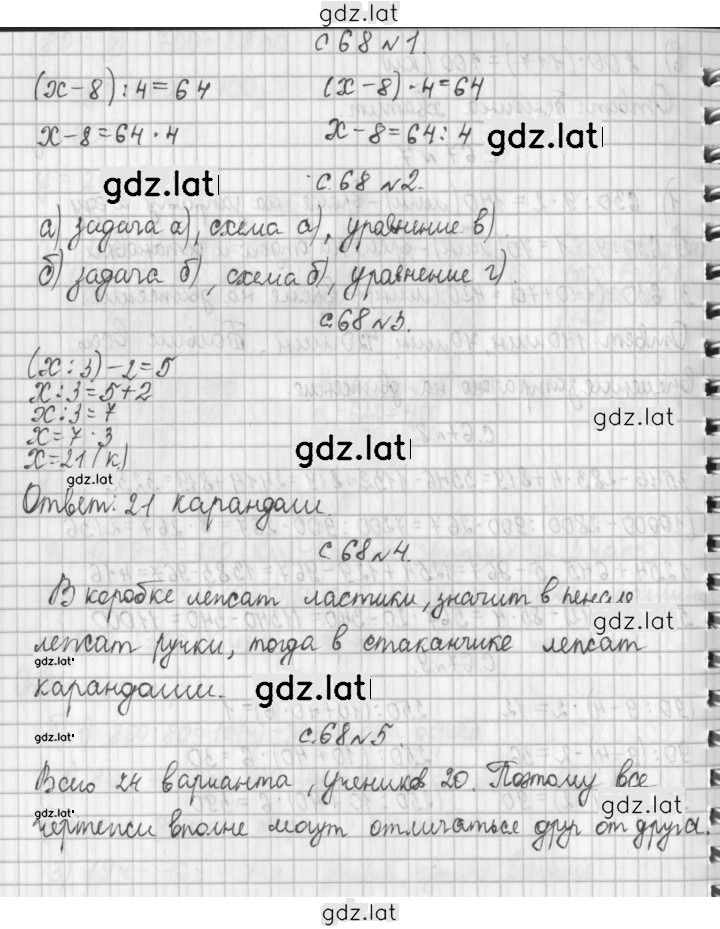 gdz.lat
с 68 №1.
(x-8):4=64 (x-8)·4=64
x-8=64·4 x-8=64:4
gdz.lat
gdz.lat
с.68 №2.
а) задача а), схема а), уравнение в).
б) задача б), схема б), уравнение г).
с.68 №3.
(x:3)-2=5
x:3=5+2
x:3=7
gdz.lat
x=7·3
gdz.lat
x=21 (к.)
gdz.lat
Ответ: 21 карандаш.
с.68 №4.
В коробке лежат ластики, значит в пенале
gdz.lat
лежат ручки, тогда в стаканчике лежат
gdz.lat
карандаши.
gdz.lat
gdz.lat
с.68 №5.
Всего 24 варианта, учеников 20. Поэтому все
gdz.lat
gdz.lat
чертежи вполне могут отличаться друг от друга.
gdz.lat